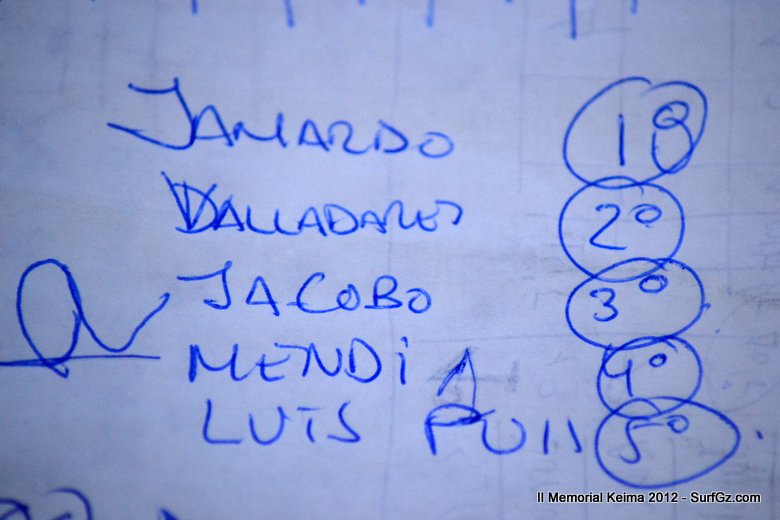 JAMARDO 1º
VALLADARES 2º
JACOBO 3º
MENDI 4º
LUIS 5º
II Memorial Keima 2012 - SurfGz.com